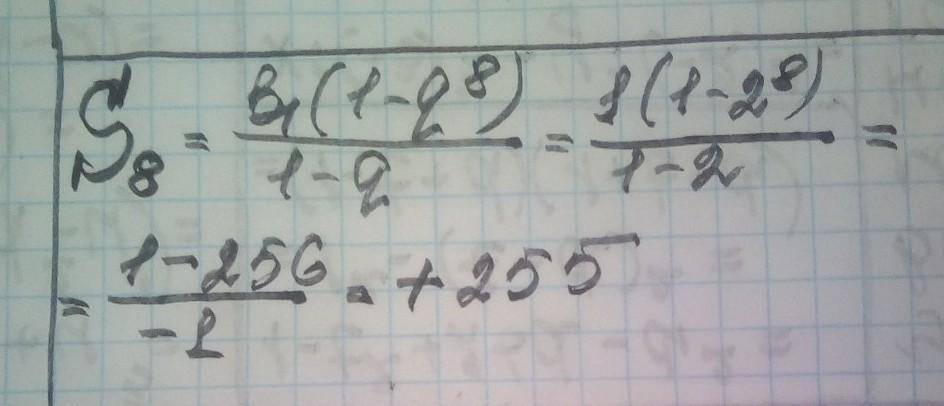 S₈ = b₁(1-q⁸)/(1-q) = 1(1-2⁸)/(1-2) =
= (1-256)/(-1) = +255